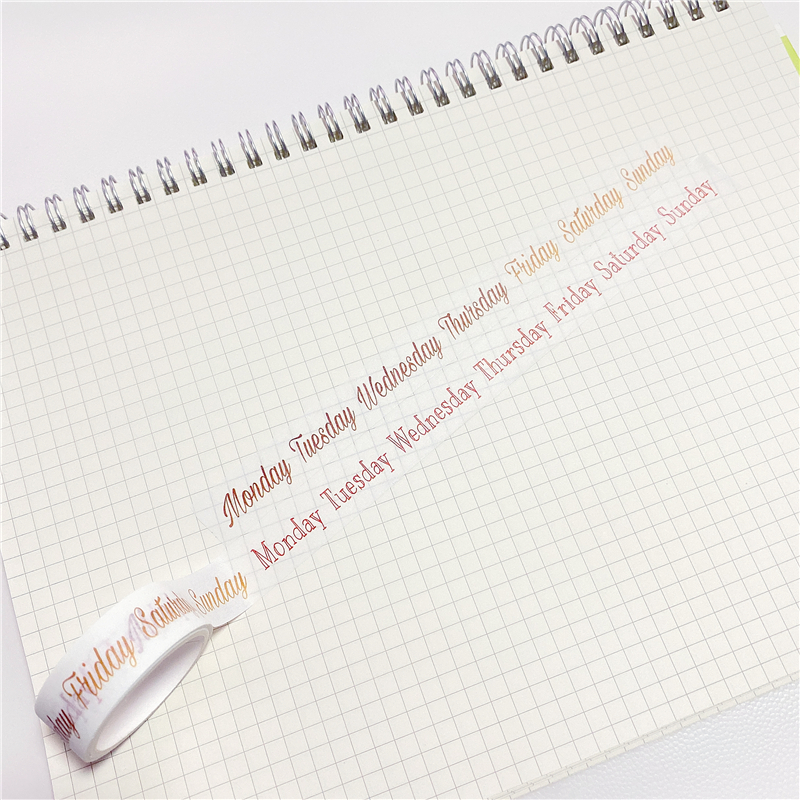 Monday Tuesday Wednesday Thursday Friday Saturday Sunday
Monday Tuesday Wednesday Thursday Friday Saturday Sunday
Friday Saturday Sunday